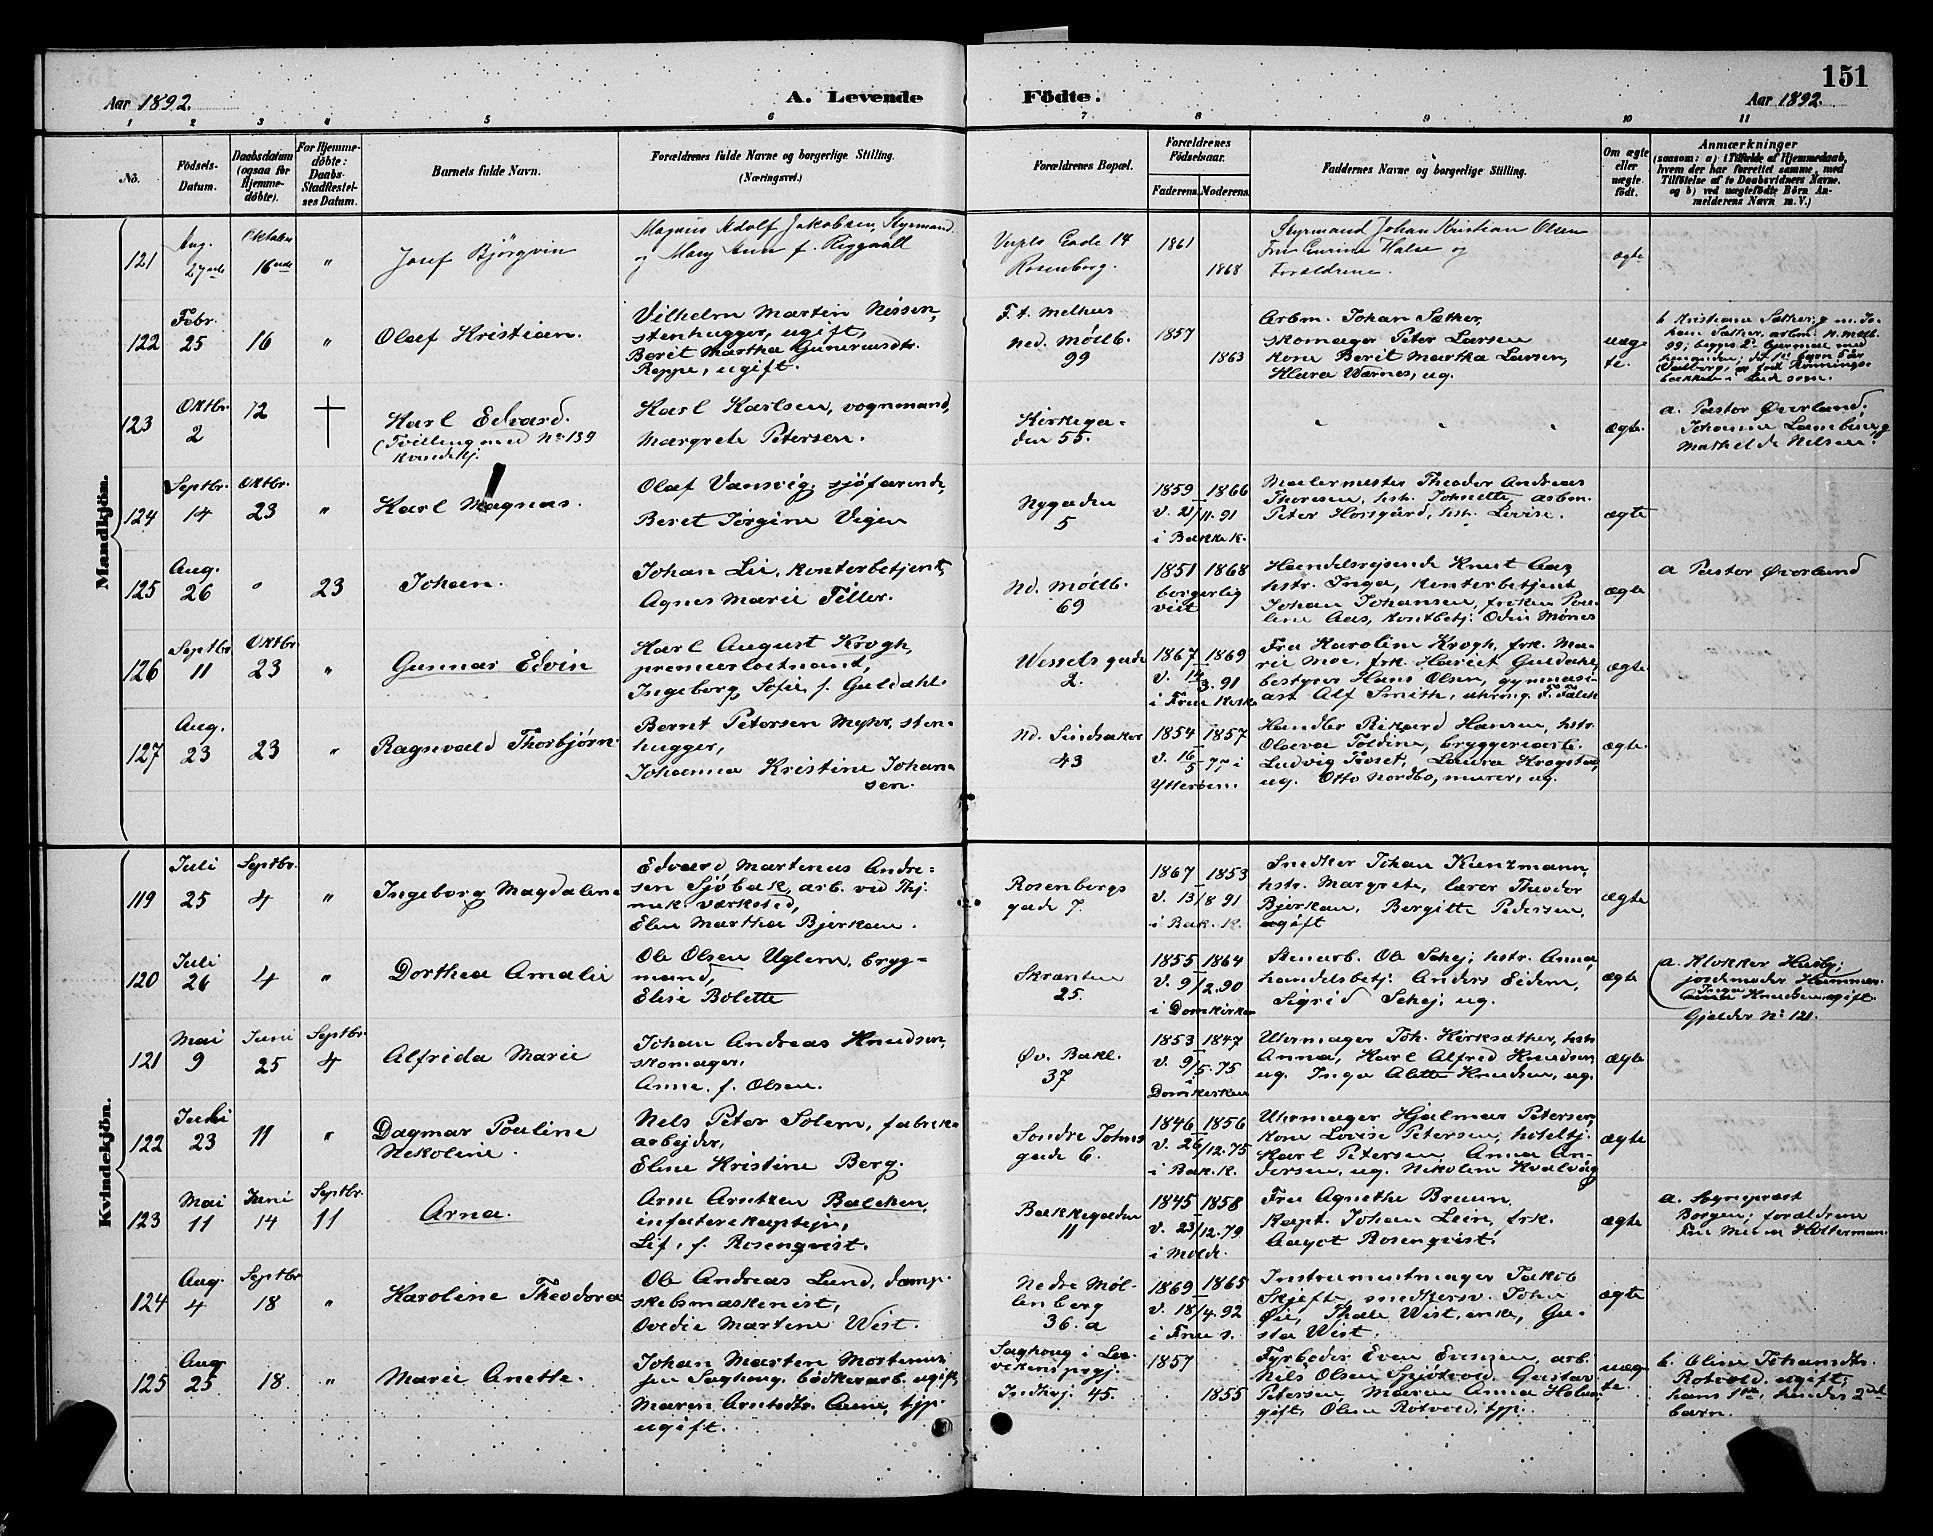 151
Aar 1892. A. Levende Födte. Aar 1892.
1 2 3 4 5 6 7 8 9 10 11
No. Födsels-Datum. Daabsdatum (ogsaa for Hjemmedöbte). For Hjemmedöbte: Daabs-Stadfæstelses Datum. Barnets fulde Navn. Forældrenes fulde Navne og borgerlige Stilling. (Næringsvei.) Forældrenes Bopæl. Forældrenes Födselsaar. Faderens. Moderens. Faddernes Navne og borgerlige Stilling. Om ægte eller uægte födt. Anmærkninger (saasom: a) i Tilfælde af Hjemmedaab, hvem der har forrettet samme, med Tilföielse af to Daabsvidners Navne, og b) ved uægtefödte Börn Anmelderens Navn m. V.)
Mandkjön.
121 Aug. 27nde Oktober 16ende " Josef Bjørgvin
Magnus Adolf Jakobsen, Styrmand
og Mary Ann f. Riggnall
Gade 14
Rosenborg.
1861 1868
Styrmand Johan Kristian Olsen
Fru Halse og
Forældrene.
ægte
122 Febr. 25 16 " Olaf Kristian.
Vilhelm Martin Nissen,
stenhugger, ugift,
Berit Martha Gunerusdtr.
Reppe, ugift.
F. t. Melhus
Ned. Møllb.
99
1857 1863
Arbm. Johan Sæther,
skomager Peter Larsen
kone Berit Martha Larsen,
Klara Warnes, ug.
uægte.
b. Kristiane Sæther, g. m. Johan Sæther, arbm. N. Møllb.
99; begges 2det
123 Oktbr. 2 12 † Karl Edvard.
(Tvilling med No. 139
kvindekj.
Karl Karlsen, vognmand,
Margrete Petersen.
Kirkegaden 55.
" " "
ægte.
a. Pastor Øverland;
Johanna
Mathilde Nilsen.
124 Septbr. 14 Oktbr. 23 " Karl Magnus.
Olaf Vansvig, sjöfarende,
Beret Jørgine Vigen
Nygaden
5
1859 1866
v. 21/11.91
i Bakke k.
Malermester Theodor Andreas
Thoresen, hst. Johnette, arbm.
Peter Horsgård, hst. Lovise.
ægte
125 Aug. 26 " 23 Johan.
Johan Lie, kontorbetjent,
Agnes Marie Tiller.
Nd. Møllb.
69
1851 1868
borgerlig
viet
Handelsrejsende Knut Aas
hstr. Inga, kontorbetjent
Johan Johansen, frøken Pauline Aas, kontbetj. Odin Mønes
ægte
a Pastor Øverland
126 Septbr. 11 Oktbr. 23 " Gunnar Edvin
Karl August Krogh,
premierløitnant,
Ingeborg Sofie f. Guldahl.
Wessels gade
2.
1867 1869
v. 14/3.91
i Frue kirke
Fru Karoline Krogh, frk. Marie Moe, frk. Hariet Guldahl,
bestyrer Hans Olsen, gymnasiast Alf Smith, uhrmg. F. Falck
ægte
127 Aug. 23 23 " Ragnvald Thorbjørn
Bernt Petersen Myhr, stenhugger,
Johanna Kristine Johansen.
Nd. Singsaker
43
1854 1857
v. 16/5 77 i
Ytterøen.
Handler Rikard Hansen, hstr.
Olava Toldine, bryggeriarb.
Ludvig Roset, Laura Krogstad,
ug. Otto Nordbo, murer, ug.
ægte
Kvindekjön.
119 Juli 25 Septbr. 4 " Ingeborg Magdalene
Edvard Martinus Andresen Sjöbak, arb. ved Thj.
mek. værksted,
Elen Martha Bjerkan.
Rosenborgs
gade 7.
1867 1853
v. 13/8 91
i Bak. k.
Snedker Johan Kunzmann,
hstr. Margrete, lærer Theodor
Bjerkan, Bergitte Pedersen,
ugift
ægte
120 Juli 26 4 " Dorthea Amalie
Ole Olsen Uglem, brygmand,
Elise Bolette
Skranten
25.
1855 1864
v. 9/2.90
i Domkirken
Stenarb. Ole Schej, hstr. Anna,
handelsbetj. Anders Eidem,
Sigrid Schej, ug.
ægte
a. Klokker Husby;
jordemoder Hammer.
Inga Knudsen ugift.
Gjelder No. 121.
121 Mai 9 Juni 25 Septbr. 4 Alfrida Marie
Johan Andreas Knudsen,
skomager,
Anne, f. Olsen.
Øv. Bakl.
37
1853 1847
v. 9/5.75
i
Domkirken
Uhrmager Joh. Kirksæther, hstr
Anna, Karl Alfred Knudsen,
ug. Inga Alette Knudsen, ug.
ægte
122 Juli 23 11 " Dagmar Pouline
Nekoline.
Nels Peter Solem, fabrikarbejder,
Eline Kristine Berg.
Søndre Johns
gade 6.
1846 1856
v. 26/12.75
i Bak. k.
Uhrmager Hjalmar Petersen,
kone Lovise Petersen, hoteltj.
Karl Petersen, Anna Andersen, ug. Nikoline Kvalvåg
ægte
123 Mai 11 Juni 14 Septbr. 11 Arna.
Arne Arntzen Balchen,
infanterikaptejn,
Lif, f. Rosenqvist.
Bakkegaden
11
1845 1858
v. 23/12.79
i Molde.
Fru Agnethe Bruun,
kapt. Johan Lein, frk.
Aagot Rosenqvist.
ægte
a. Sogneprest
Borgen; forældrene
Fru Minna Holterman.
124 Aug. 4 Septbr 18 " Karoline Theodora
Ole Andreas Lund, dampskibsmaskinist,
Ovedie Martine Wist.
Nedre Møllenberg
36. a
1869 1865
v. 18/4.92
i Frue s.
Instrumentmager Jakob
Skjefte, snedkersv. John
Øie, Thale Wist, enke, Gusta Wist.
ægte
125 Aug 25 18. " Marie Anette.
Johan Martin Mortensen Saghaug, bødkerarb. ugift,
Maren Arntsdtr. Aune, tjp.
ugift.
Saghaug i Levikens prgj.
Indhrj. 45.
1857 1855
Fyrbøder Even Evensen, arb.
Nils Olsen Gustav
Petersen, Maren Anna
gift, Oline Rotvold, tjp.
uægte.
b. Oline Johansdtr.
Rotvold, ugift,
hans 1ste, hendes 2det
barn.